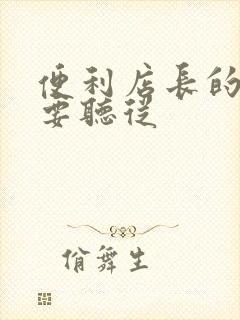 便利店長的
要聽從
佾舞生